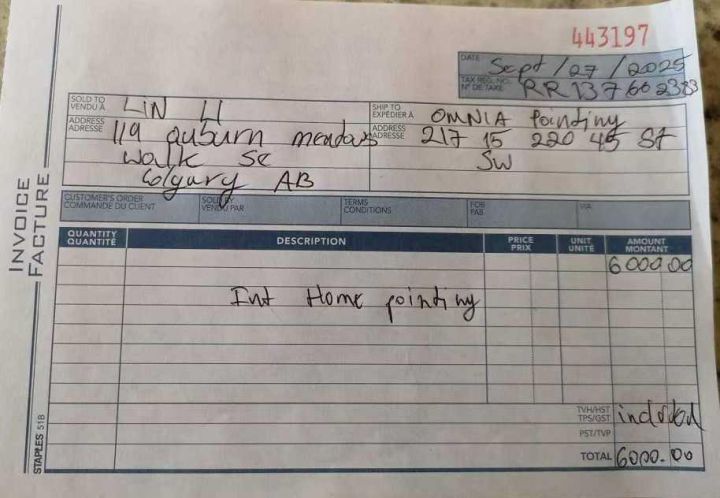 443197
DATE Sept/27/2025
TAX REG. NO.
N° DE TAXE RR137602383
SOLD TO
VENDU À LIN LI
ADDRESS
ADRESSE 119 auburn meadows
walk se
Calgary AB
SHIP TO
EXPÉDIER À OMNIA Painting
ADDRESS
ADRESSE 217 15 220 45 St
SW
INVOICE
FACTURE
CUSTOMER'S ORDER
COMMANDE DU CLIENT
SOLD BY
VENDU PAR
TERMS
CONDITIONS
FOB
FAB
VIA
QUANTITY
QUANTITÉ
DESCRIPTION
PRICE
PRIX
UNIT
UNITÉ
AMOUNT
MONTANT
6000.00
Int Home painting
TVH/HST
TPS/GST included
PST/TVP
TOTAL 6000.00
STAPLES 51B